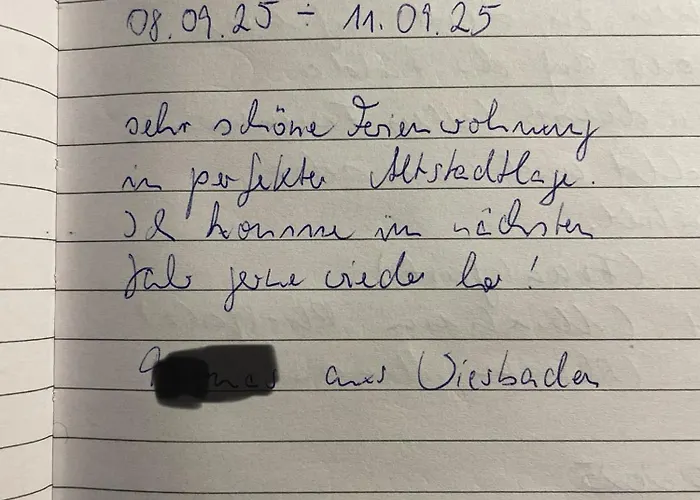 08.09.25 ÷ 11.09.25
sehr schöne Ferienwohnung
in perfekter Altstadtlage.
Ich komme im nächsten
Jahr gerne wieder her!
aus Wiesbaden